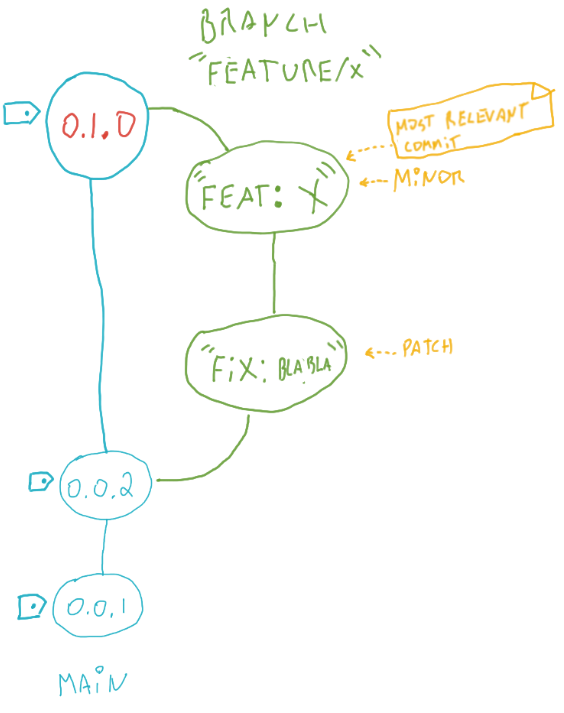 BRANCH
"FEATURE/x"
0.1.0
MOST RELEVANT
COMMIT
"FEAT: X"
MINOR
"FiX: BLABLA"
PATCH
0.0.2
0.0.1
MAiN